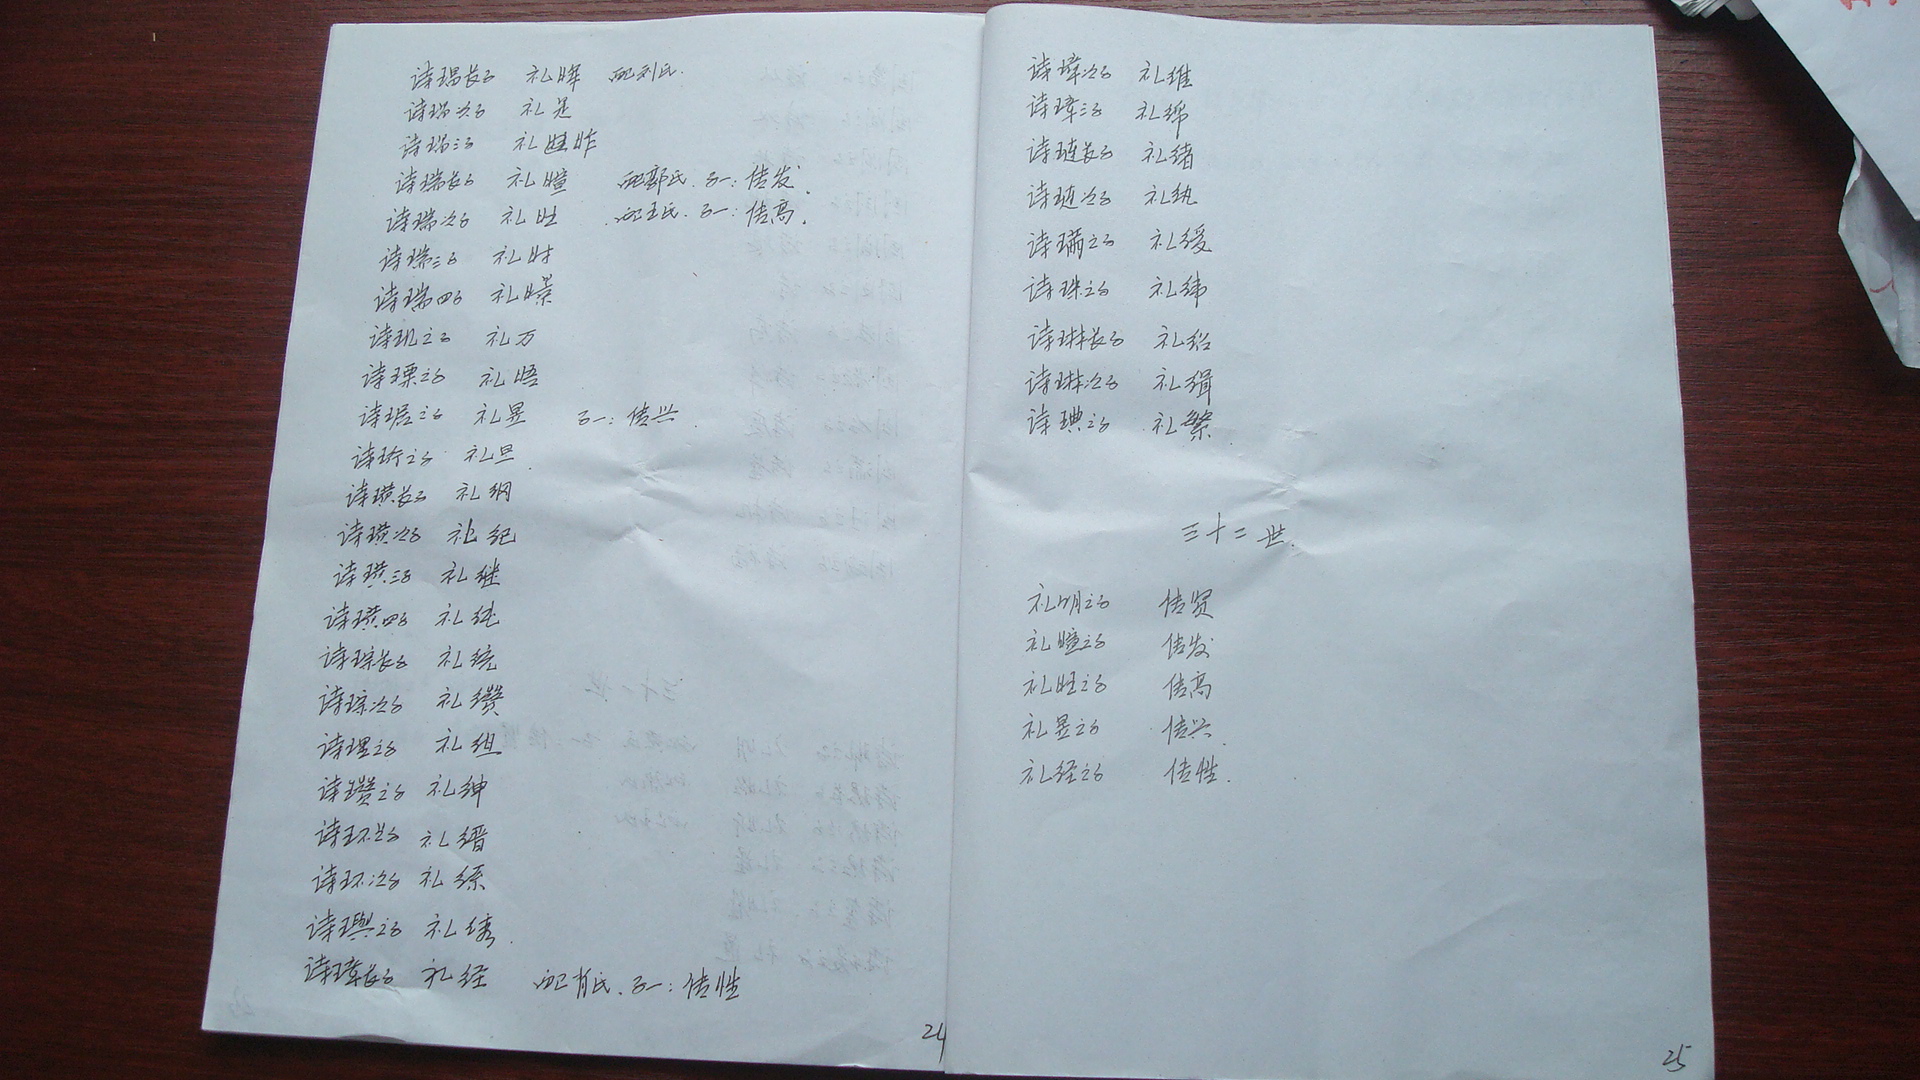 诗瑞长子 礼晖 配刘氏.
诗瑞次子 礼是
诗瑞三子 礼昨
诗瑞长子 礼瞳 配郭氏.子一:传发.
诗瑞次子 礼旺 配王氏.子一:传高.
诗瑞三子 礼时
诗瑞四子 礼暻
诗玑之子 礼万
诗瑮之子 礼晤
诗琚之子 礼昱 子一:传兴.
诗珩之子 礼旦.
诗璜长子 礼纲
诗璜次子 礼纪
诗璜三子 礼继
诗璜四子 礼纯
诗琮长子 礼统
诗琮次子 礼缵
诗理之子 礼组
诗瓒之子 礼绅
诗环长子 礼缙
诗环次子 礼
诗玙之子 礼绣.
诗璋长子 礼经 配肖氏.子一:传性
24
诗璋次子 礼维
诗璋三子 礼绵
诗琏长子 礼绪
诗琏次子 礼纨
诗璊之子 礼缓
诗珠之子 礼纬
诗琳长子 礼绍
诗琳次子 礼缉
诗琠之子 礼繁.
三十二世.
礼明之子 传贤
礼瞳之子 传发
礼旺之子 传高
礼昱之子 传兴.
礼经之子 传性.
25